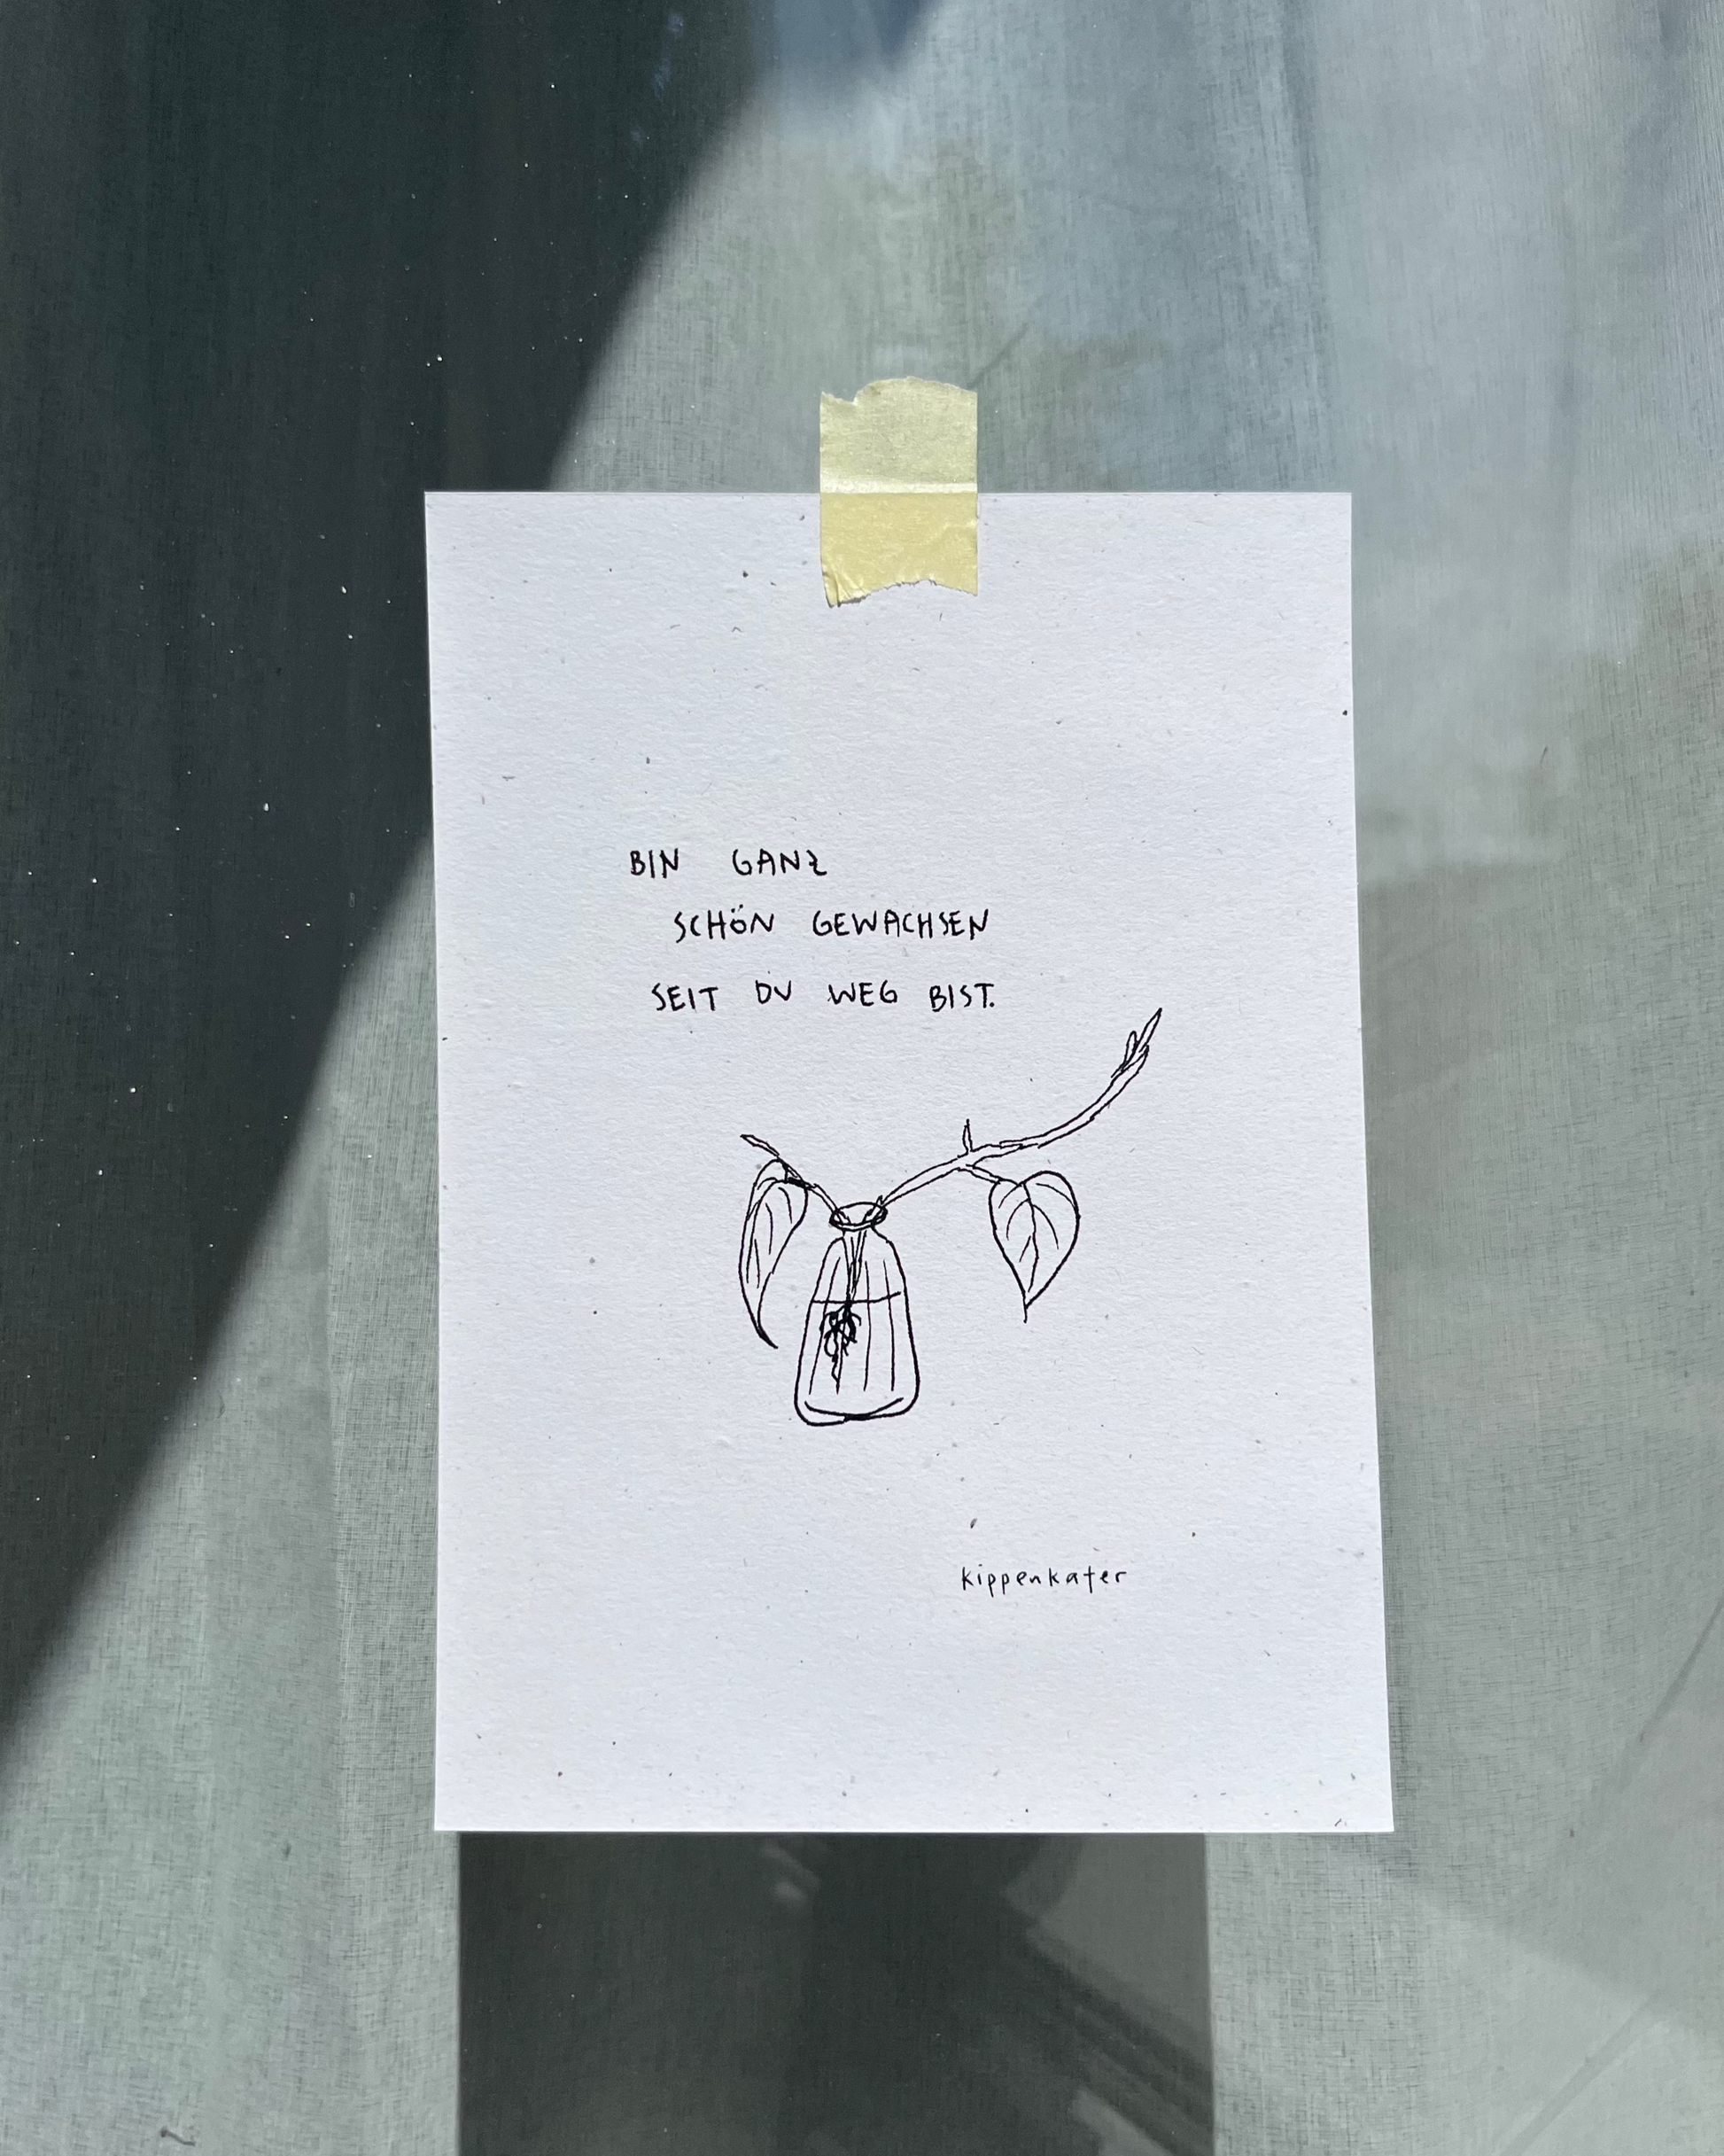 BIN GANZ
SCHÖN GEWACHSEN
SEIT DU WEG BIST.
kippenkater